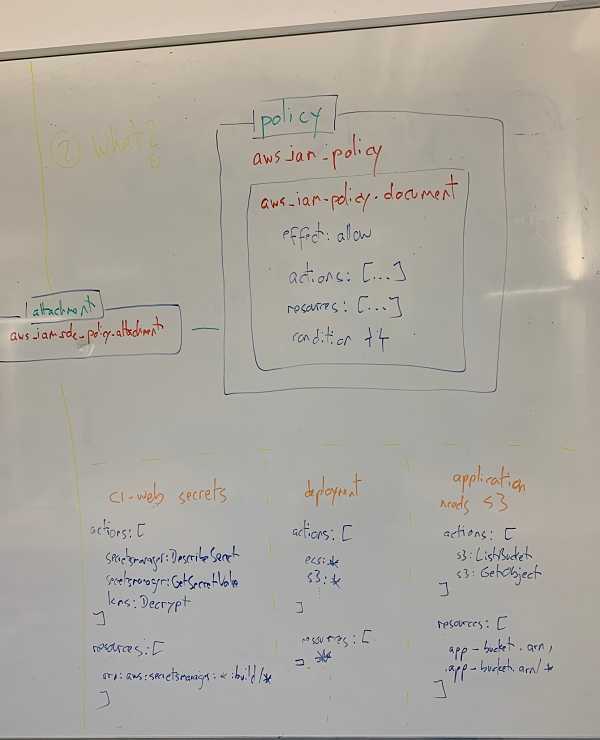 ② What?
policy
aws_iam_policy
aws_iam_policy.document
effect: allow
actions: [...]
resources: [...]
condition {}
attachment
aws_iam_role_policy.attachment
CI-web secrets
actions: [
secretsmanager:DescribeSecret
secretsmanager:GetSecretValue
kms:Decrypt
]
resources: [
arn:aws:secretsmanager:*:build/*
]
deployment
actions: [
ecs:*
s3:*
]
resources: [
] *
application
reads S3
actions: [
s3:ListBucket
s3:GetObject
]
resources: [
app-bucket.arn,
app-bucket.arn/*
]